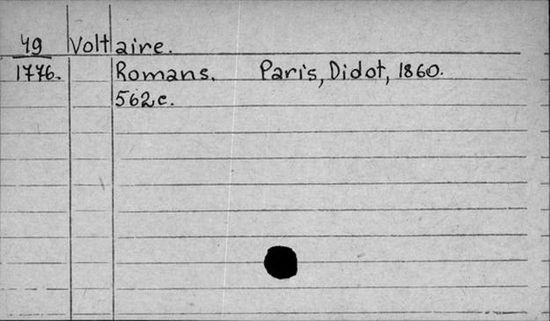 49 Voltaire.
1776. Romans. Paris, Didot, 1860.
562c.